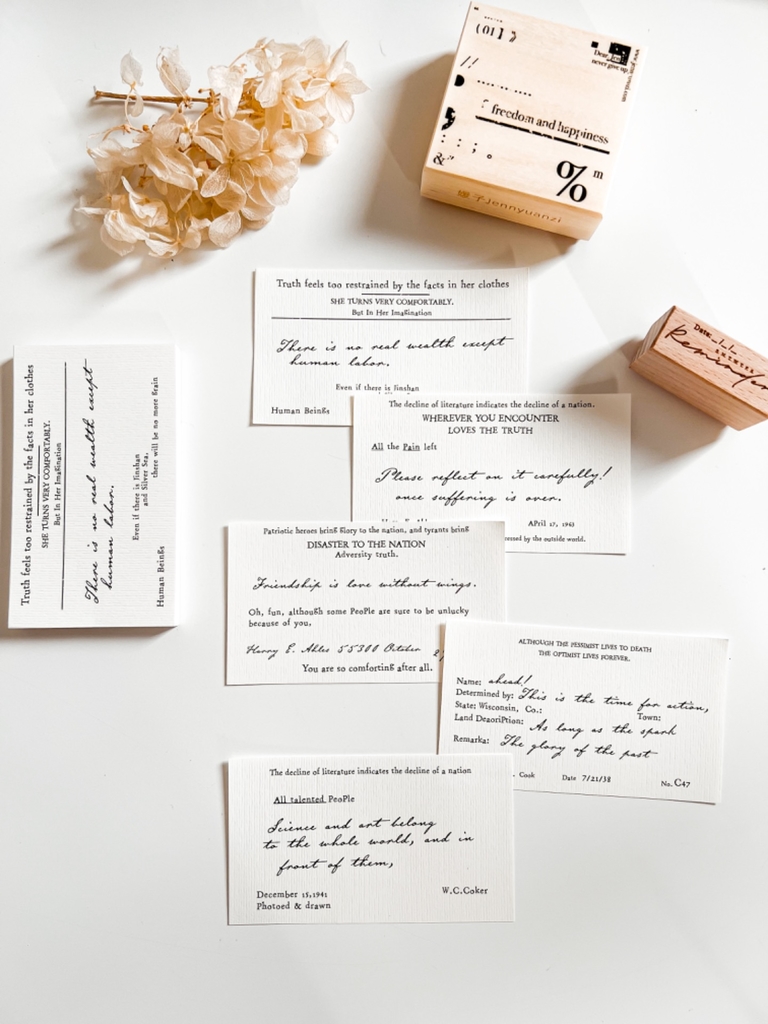 (011)
Dear,
never give up,
freedom and happiness
&
% m
Jennyuanzi
Truth feels too restrained by the facts in her clothes
SHE TURNS VERY COMFORTABLY.
But In Her Imagination
There is no real wealth except
human labor.
Even if there is Jinshan
Human Beings
Date:
ANSWERS
Reminder
Truth feels too restrained by the facts in her clothes
SHE TURNS VERY COMFORTABLY.
But In Her Imagination
There is no real wealth except
human labor.
Even if there is Jinshan
and Silver Sea,
there will be no more grain
Human Beings
The decline of literature indicates the decline of a nation.
WHEREVER YOU ENCOUNTER
LOVES THE TRUTH
All the Pain left
Please reflect on it carefully!
once suffering is over.
April 17, 1963
by the outside world.
Patriotic heroes being Glory to the nation, and tyrants being
DISASTER TO THE NATION
Adversity truth.
Friendship is love without wings.
Oh, fun, although some PeoPle are sure to be unlucky
because of you,
Harry E. Ahles 55300 October 2
You are so comforting after all.
ALTHOUGH THE PESSIMIST LIVES TO DEATH
THE OPTIMIST LIVES FOREVER.
Name: ahead!
Determined by: This is the time for action,
State: Wisconsin, Co.: Town:
Land DeaoriPtion: As long as the spark
Remarka: The glory of the past
. Cook Date 7/21/38 No. C47
The decline of literature indicates the decline of a nation
All talented PeoPle
Science and art belong
to the whole world, and in
front of them,
December 15,1941 W.C.Coker
Photoed & drawn